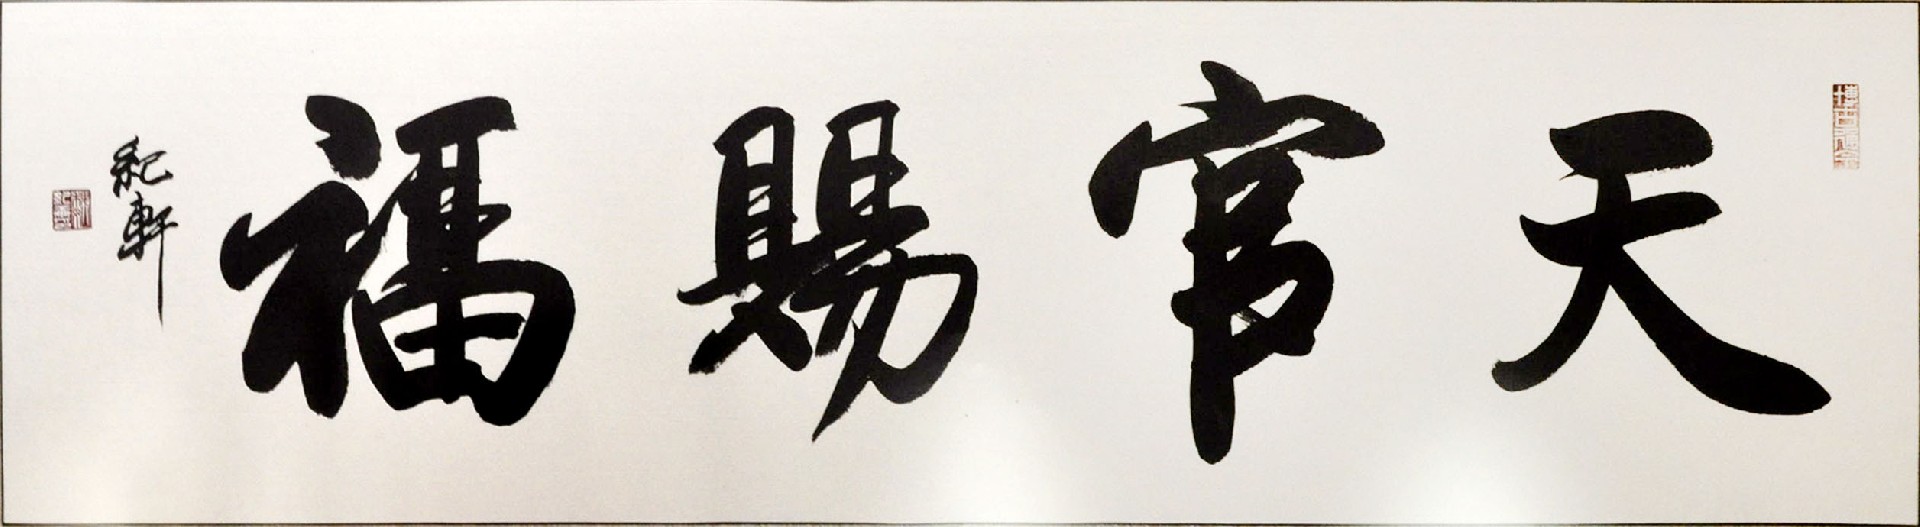 天官賜福
紀軒